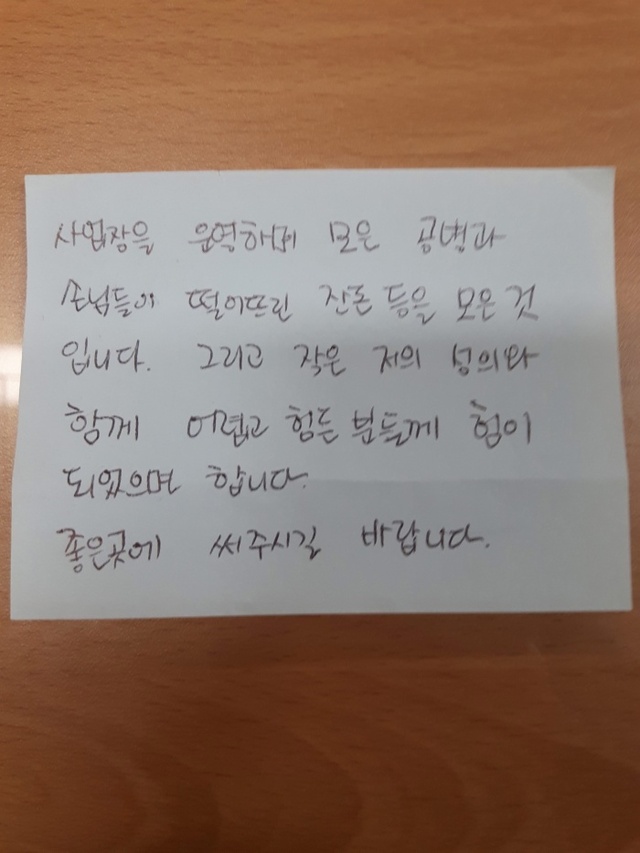 사업장을 운영하며 모은 공병과
손님들이 떨어뜨린 잔돈 등을 모은 것
입니다. 그리고 작은 저의 성의와
함께 어렵고 힘든 분들께 힘이
되었으며 합니다.
좋은곳에 써주시길 바랍니다.